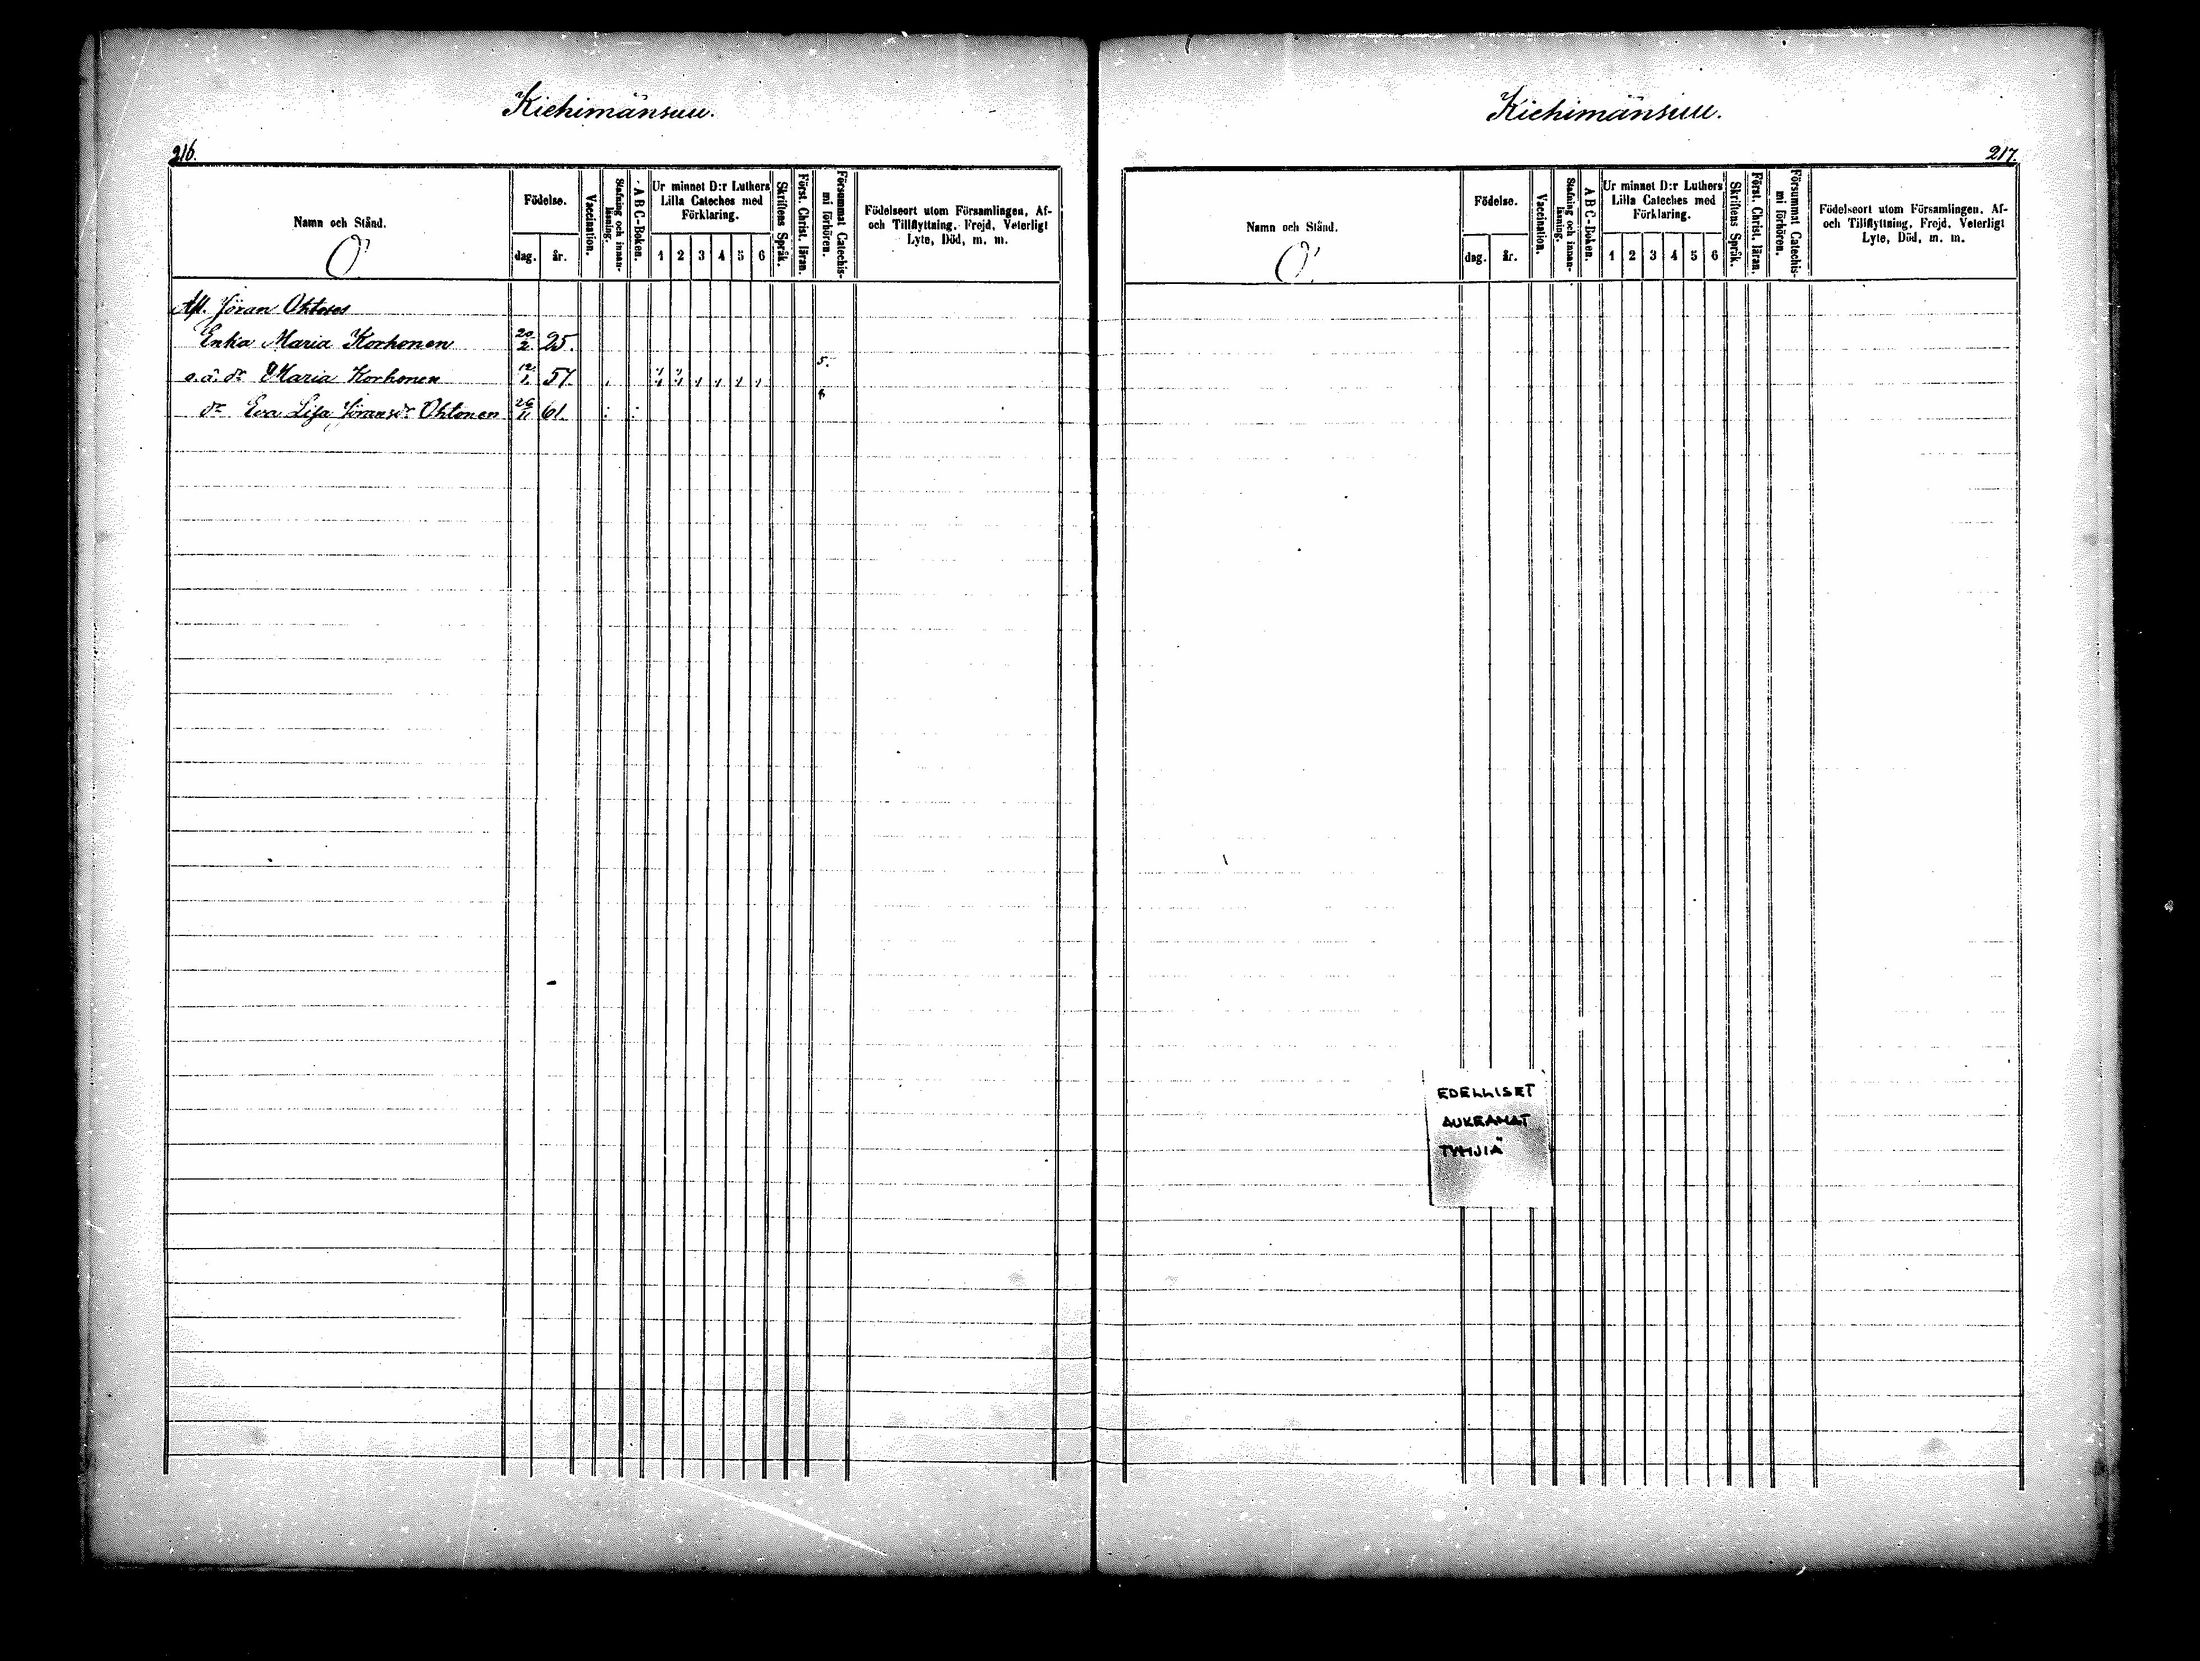 Kiehimänsuu.
216.
Namn och Stånd.
O.
Födelse.
dag.
år.
Vaccination.
Stafning och innanläsning.
A B C-Boken.
Ur minnet D:r Luthers
Lilla Cateches med
Förklaring.
1 2 3 4 5 6
Skriftens Språk.
Först. Christ. läran.
Försummat Catechis-
mi förhören.
Födelseort utom Församlingen, Af-
och Tillflyttning, Frejd, Veterligt
Lyte, Död, m. m.
Afl. Jöran Ohtoses
Enka Maria Korhonen 20/2 25.
5.
o.ä. dr Maria Korhonen 12/1 57.
dr Eva Lisa Jöransdr Ohtonen 26/11 61.
Kiehimänsuu.
217.
Namn och Stånd.
O.
Födelse.
dag.
år.
Vaccination.
Stafning och innan-
läsning.
A B C-Boken.
Ur minnet D:r Luthers
Lilla Cateches med
Förklaring.
1 2 3 4 5 6
Skriftens Språk.
Först. Christ. läran.
Försummat Catechis-
mi förhören.
Födelseort utom Församlingen, Af-
och Tillflyttning, Frejd, Veterligt
Lyte, Död, m. m.
EDELLISET
AUKEAMAT
TYHJIÄ